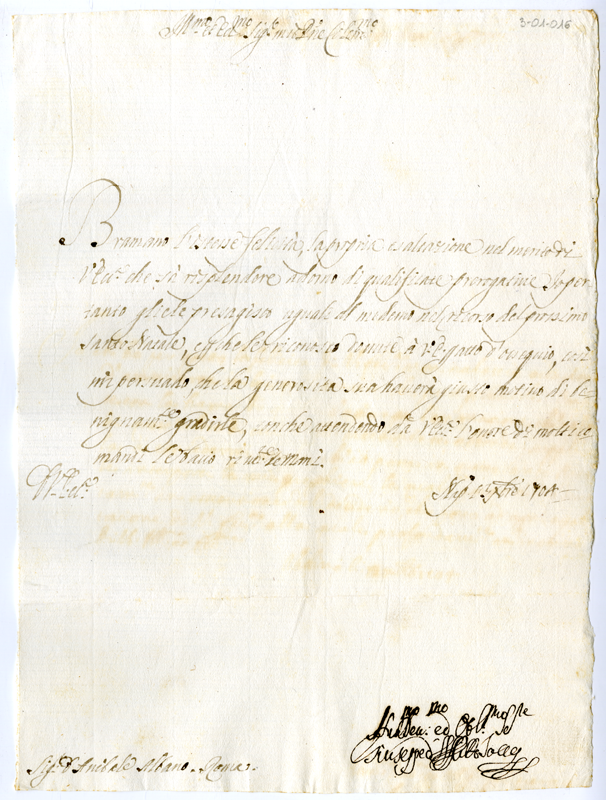 3-01-016
Ill.mo et Ecc.mo Sig.re mio P.rone Colen.mo
Bramano l'istesse felicità, la propria esaltatione nel merito di
V. Ecc.a che sà risplendere adorno di qualificate prerogative. Io per
tanto gliele presagisco uguali al medemo nel ricorso del prossimo
Santo Natale, e gliele riconosco dovute à V.E. p atto d'ossequio, così
mi persuado, che la generosità sua haverà giusto motivo di be
nignam.te gradirle, con che attendendo da V. Ecc.a l'honore di molti co
mandi le bacio riv.te le mani.
Di V. Ecc.a
xbre 1704
Hum.mo Dev.mo ed Obl.mo Se
Giuseppe
Sig.r D. Anibale Albano. Roma.